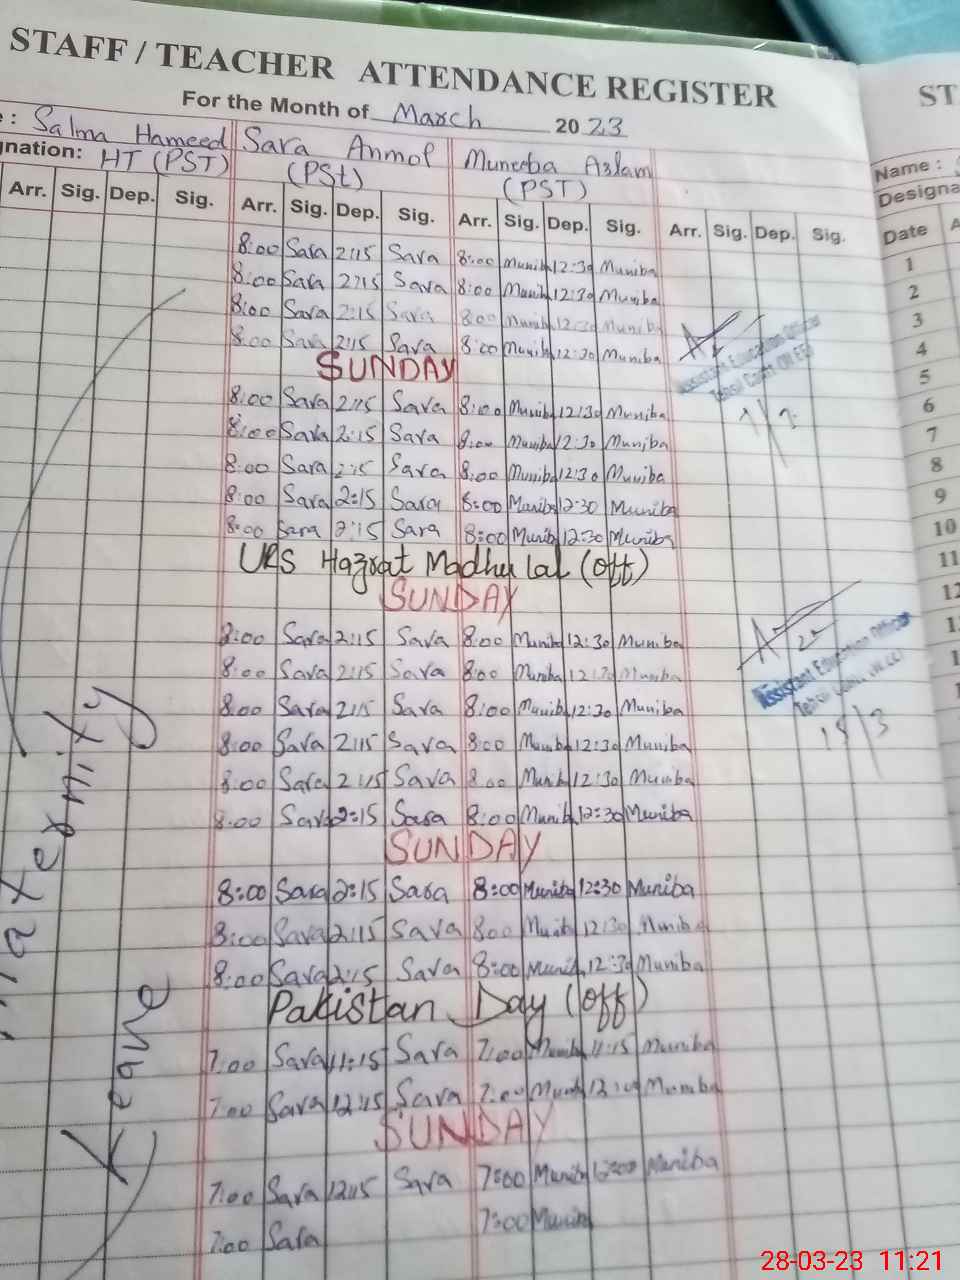 STAFF / TEACHER ATTENDANCE REGISTER
For the Month of March 2023
: Salma Hameed Sara Anmol Muneeba Aslam
gnation: HT (PST) (PSt) (PST)
Arr. Sig. Dep. Sig. Arr. Sig. Dep. Sig. Arr. Sig. Dep. Sig. Arr. Sig. Dep. Sig.
8:00 Sara 2:15 Sara 8:00 Munib 12:30 Muniba
8:00 Sara 2:15 Sara 8:00 Munib 12:30 Muniba
8:00 Sara 2:15 Sara 8:00 Munib 12:30 Muniba
8:00 Sara 2:15 Sara 8:00 Munib 12:30 Muniba
SUNDAY
8:00 Sara 2:15 Sara 8:00 Muniba 12:30 Muniba
8:00 Sara 2:15 Sara 8:00 Muniba 12:30 Muniba
8:00 Sara 2:15 Sara 8:00 Muniba 12:30 Muniba
8:00 Sara 2:15 Sara 8:00 Muniba 12:30 Muniba
8:00 Sara 2:15 Sara 8:00 Munib 12:30 Muniba
URS Hazrat Madhu lal (Off)
SUNDAY
8:00 Sara 2:15 Sara 8:00 Munib 12:30 Muniba
8:00 Sara 2:15 Sara 8:00 Muniba 12:30 Muniba
8:00 Sara 2:15 Sara 8:00 Muniba 12:30 Muniba
8:00 Sara 2:15 Sara 8:00 Munib 12:30 Muniba
8:00 Sara 2:15 Sara 8:00 Munib 12:30 Muniba
8:00 Sara 2:15 Sara 8:00 Munib 12:30 Muniba
SUNDAY
8:00 Sara 2:15 Sara 8:00 Muniba 12:30 Muniba
8:00 Sara 2:15 Sara 800 Munib 12:30 Muniba
8:00 Sara 2:15 Sara 8:00 Munib 12:30 Muniba
Pakistan Day (Off)
7:00 Sara 11:15 Sara 7:00 Munib 11:15 Muniba
7:00 Sara 12:15 Sara 7:00 Munib Muniba
SUNDAY
7:00 Sara 12:15 Sara 7:00 Munib Muniba
7:00 Sara 7:00 Munib
Maternity
Leave
Assistant Education Officer
Assistant Education Officer
15/3
ST
Name :
Designa
Date A
1
2
3
4
5
6
7
8
9
10
11
12
28-03-23 11:21